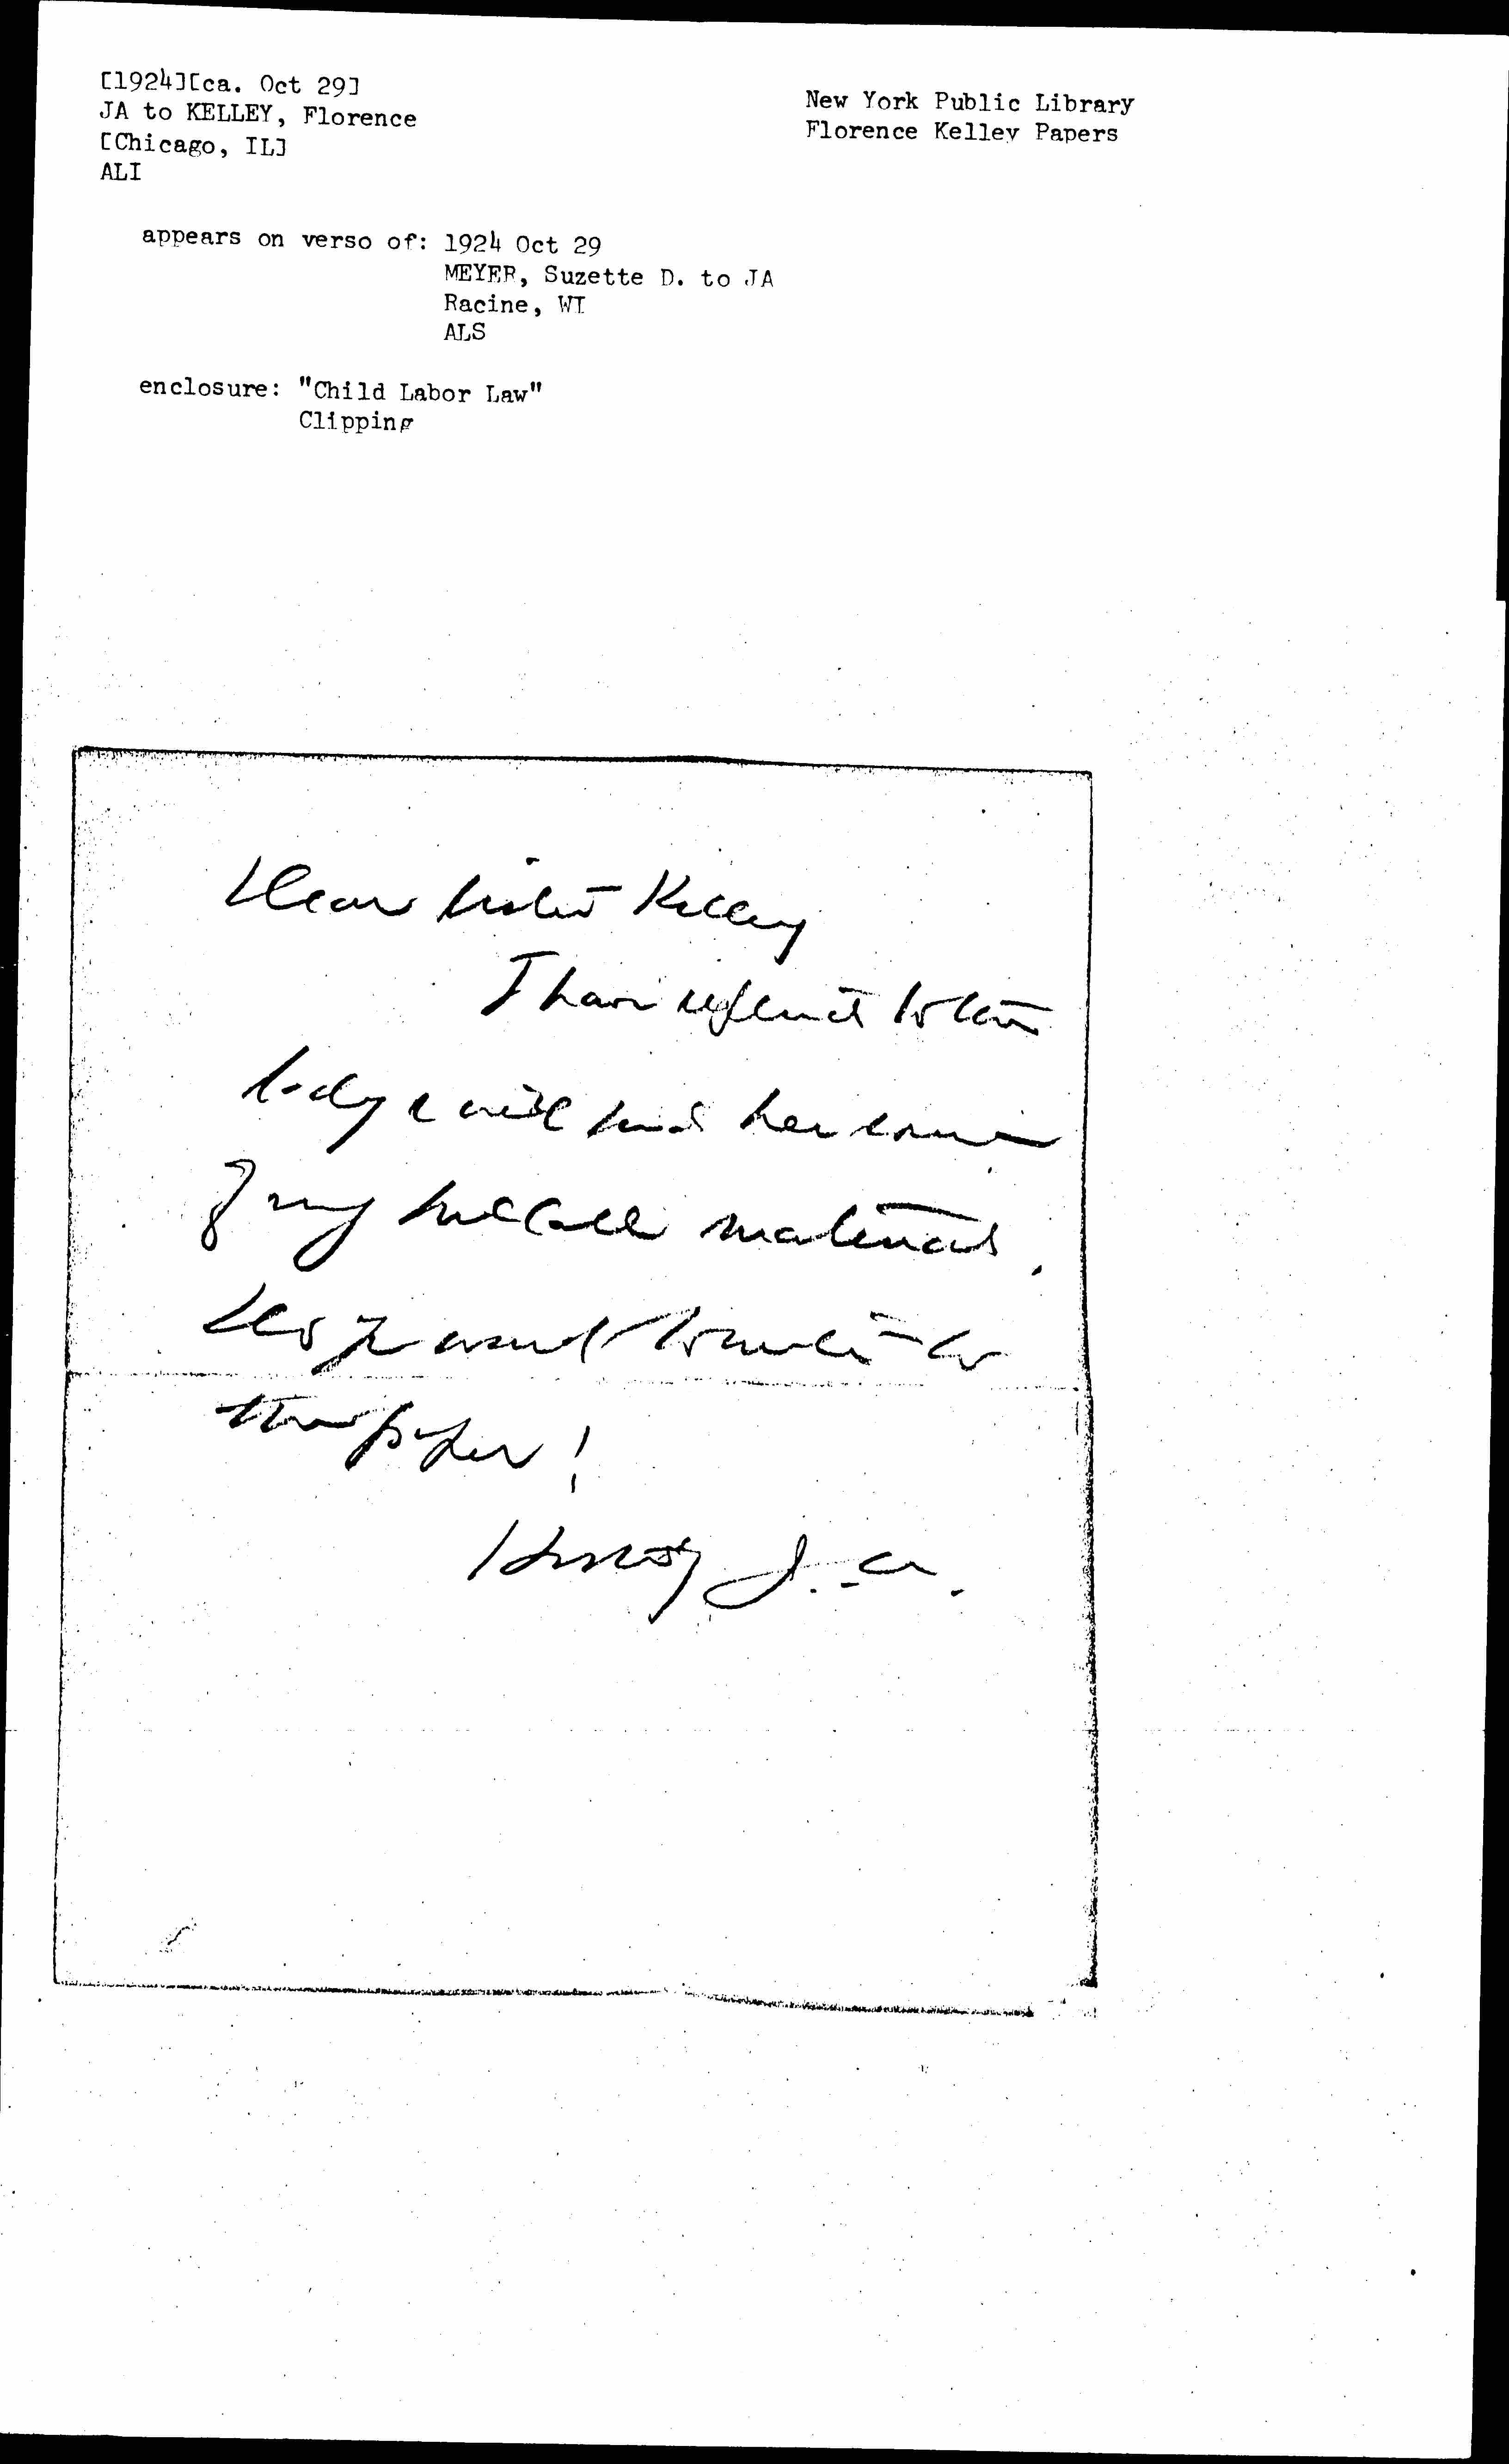 [1924][ca. Oct 29]
JA to KELLEY, Florence
[Chicago, IL]
ALI
New York Public Library
Florence Kelley Papers
appears on verso of: 1924 Oct 29
MEYER, Suzette D. to JA
Racine, WI
ALS
enclosure: "Child Labor Law"
Clipping
Dear Sister Kelley
I have replied to the
lady & will send her some
of my material.
Do you want to write to
the paper!
J. A.